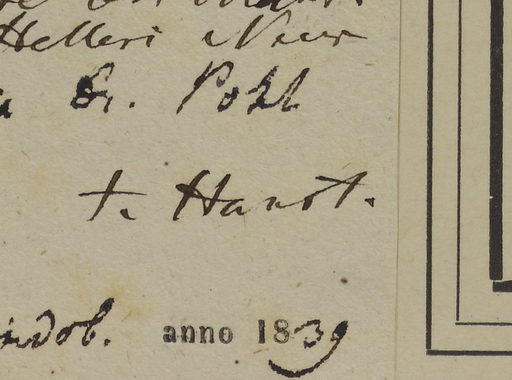 Helleri Neur
Dr. Pohl
t. Hanst.
indob. anno 1839